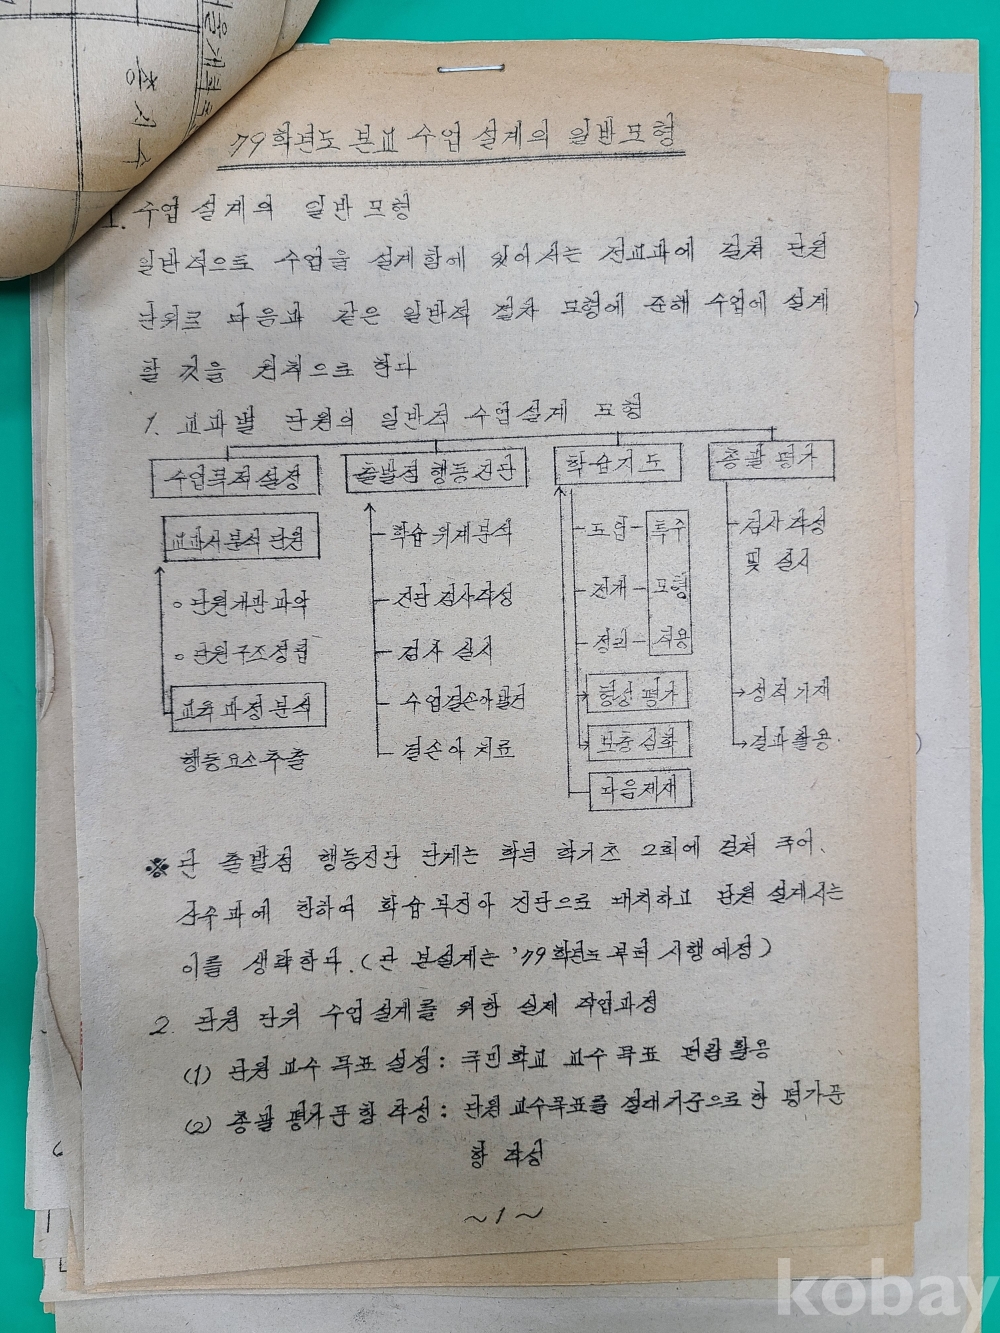 '79학년도 본교 수업설계의 일반모형
I. 수업설계의 일반모형
일반적으로 수업을 설계함에 있어서는 전교과에 걸쳐 단원
단위로 다음과 같은 일반적 절차 모형에 준해 수업에 설계
할 것을 원칙으로 한다
1. 교과별 단원의 일반적 수업설계 모형
수업목적설정 출발점 행동진단 학습지도 총괄평가
교과서분석 단원
○ 단원개관파악
○ 단원구조정립
교육과정분석
행동요소추출
학습위계분석
진단검사작성
검사 실시
수업결손아발견
결손아 치료
도입 - 특수
전개 - 모형
정리 - 적용
형성평가
보충심화
다음제재
검사작성
및 실시
성적기재
결과활용
※ 단 출발점 행동진단 단계는 학년 학기초 2회에 걸쳐 국어.
산수과에 한하여 학습부진아 진단으로 대치하고 단원 설계서는
이를 생략한다. (단 본설계는 '79학년도 부터 시행예정)
2. 단원 단위 수업설계를 위한 실제 작업과정
(1) 단원 교수 목표 설정 : 국민학교 교수 목표 편람 활용
(2) 총괄 평가문항 작성 : 단원 교수목표를 절대기준으로 한 평가문
항 작성
~1~
kobay